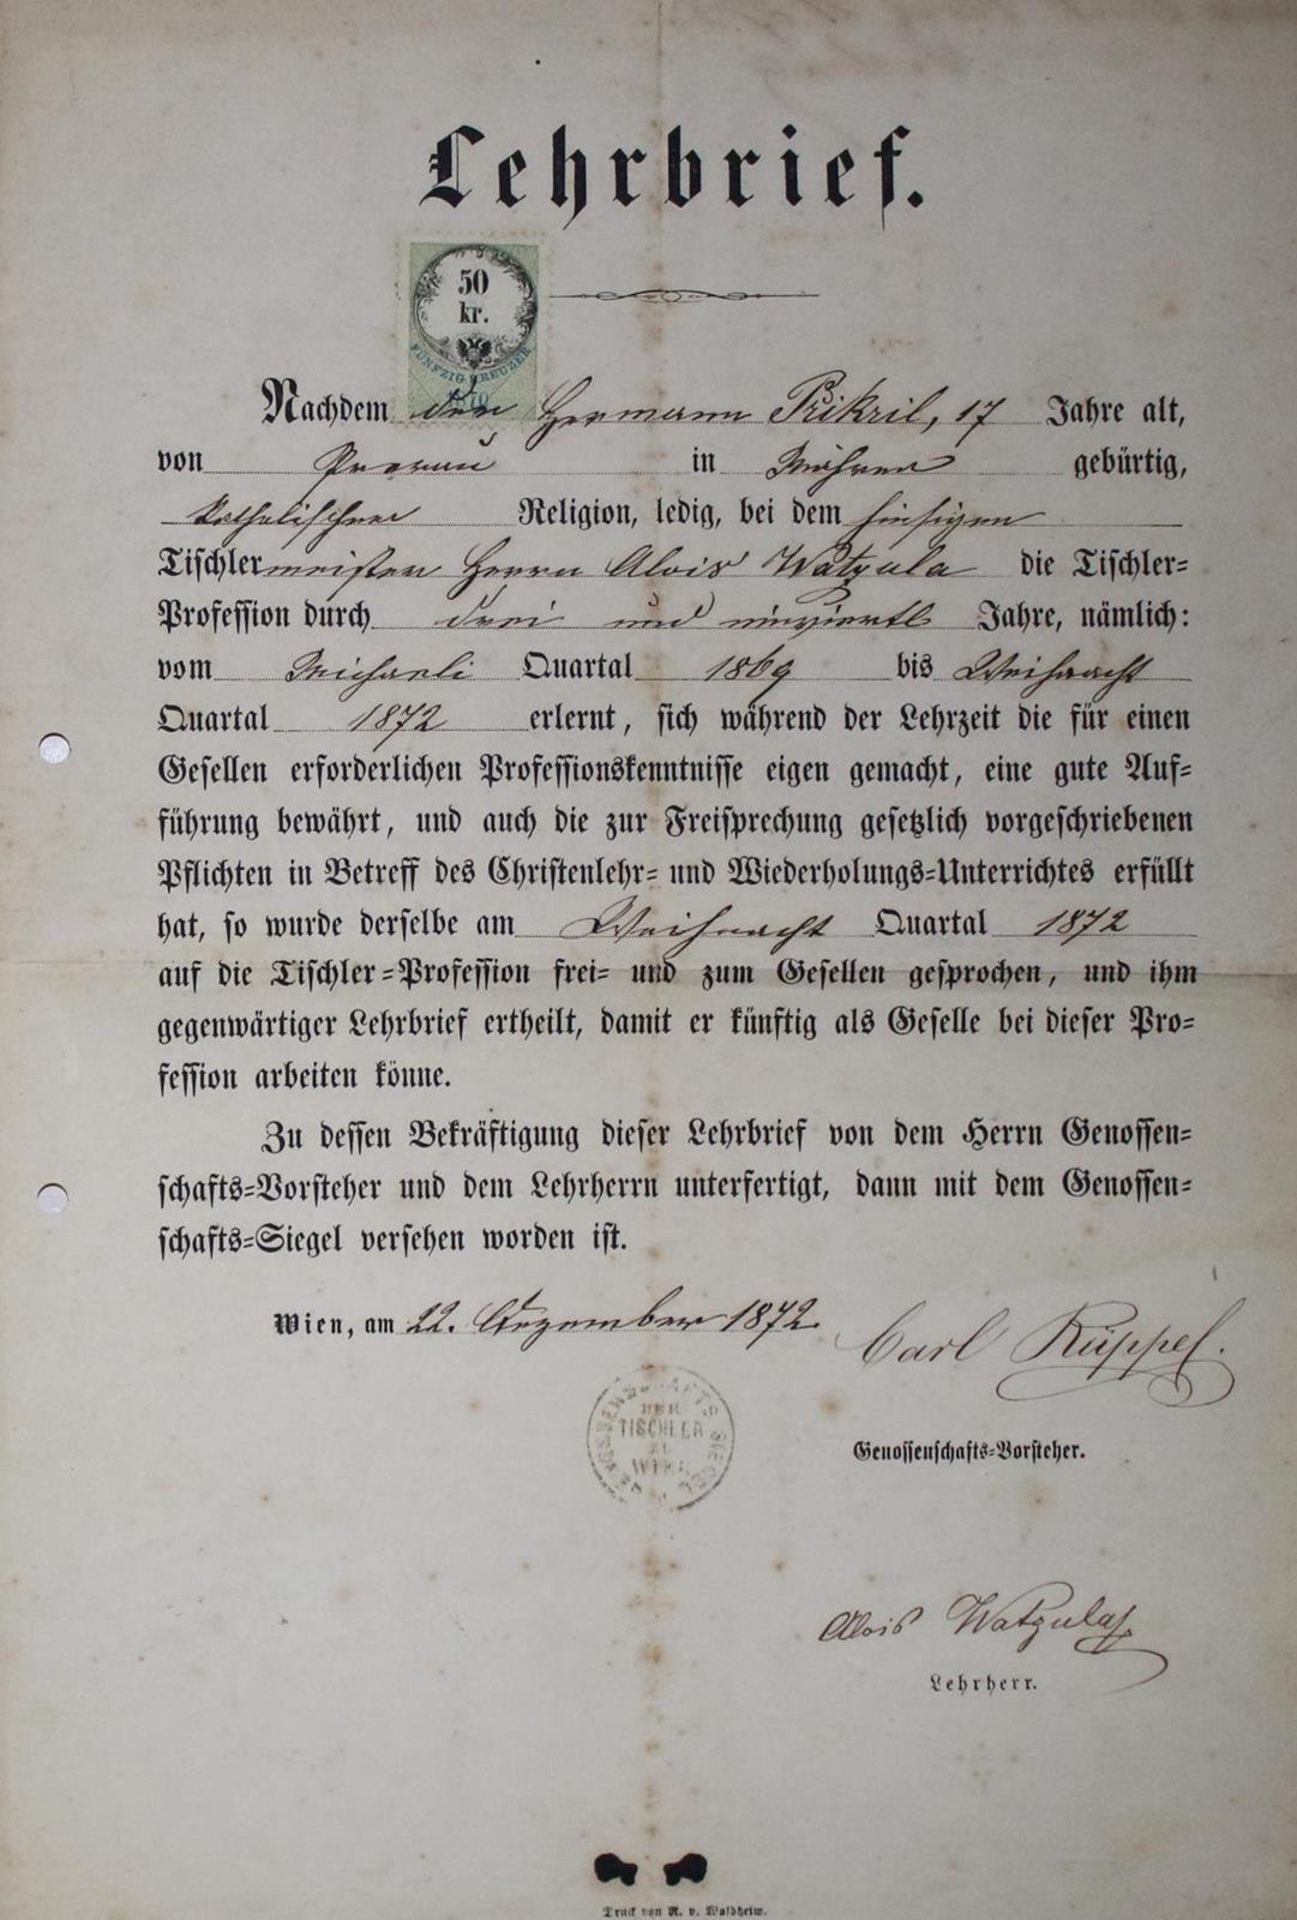 Lehrbrief.
50
kr.
FÜNFZIG KREUZER
1870
Nachdem der Hermann Přikril, 17 Jahre alt,
von Prerau in Mähren gebürtig,
katholischer Religion, ledig, bei dem hiesigen
Tischlermeister Herrn Alois Watzula die Tischler=
Profession durch drei und einviertl Jahre, nämlich:
vom Michaeli Quartal 1869 bis Weihnacht
Quartal 1872 erlernt, sich während der Lehrzeit die für einen
Gesellen erforderlichen Professionskenntnisse eigen gemacht, eine gute Auf=
führung bewährt, und auch die zur Freisprechung gesetzlich vorgeschriebenen
Pflichten in Betreff des Christenlehr= und Wiederholungs=Unterrichtes erfüllt
hat, so wurde derselbe am Weihnacht Quartal 1872
auf die Tischler=Profession frei= und zum Gesellen gesprochen, und ihm
gegenwärtiger Lehrbrief ertheilt, damit er künftig als Geselle bei dieser Pro=
fession arbeiten könne.
Zu dessen Bekräftigung dieser Lehrbrief von dem Herrn Genossen=
schafts=Vorsteher und dem Lehrherrn unterfertigt, dann mit dem Genossen=
schafts=Siegel versehen worden ist.
Wien, am 22. Dezember 1872.
Carl Rüppel.
GENOSSENSCHAFTS SIEGEL
DER
TISCHLER
IN
WIEN
Genossenschafts=Vorsteher.
Alois Watzula
Lehrherr.
Druck von R. v. Waldheim.